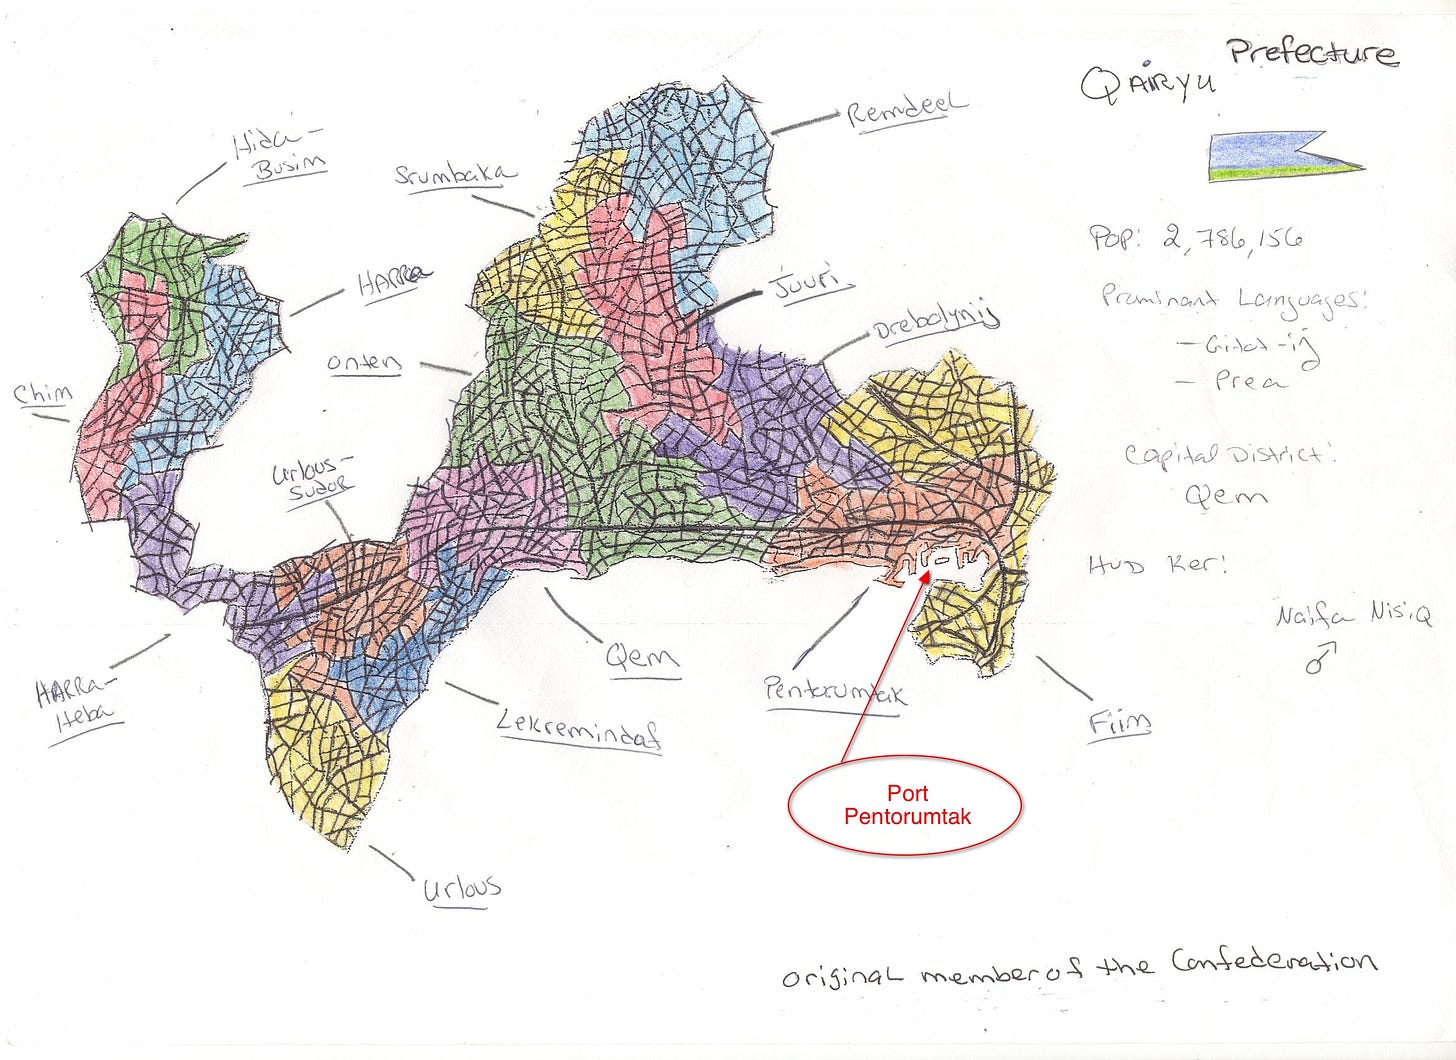 Prefecture
QAIRYU
Remdeel
Hida-
Busim
Srumbaka
Pop: 2,786,156
HARRA
Juuri
Prominant Languages:
Drebolynij
- Gitot-ij
onten
- Prea
Chim
Capital District:
Qem
Urlous-
Sudor
Hud Ker:
Naifa Nisiq
♂
Qem
HARRA-
Heba
Pentorumtak
Fiim
Lekremindaf
Port
Pentorumtak
Urlous
original member of the Confederation